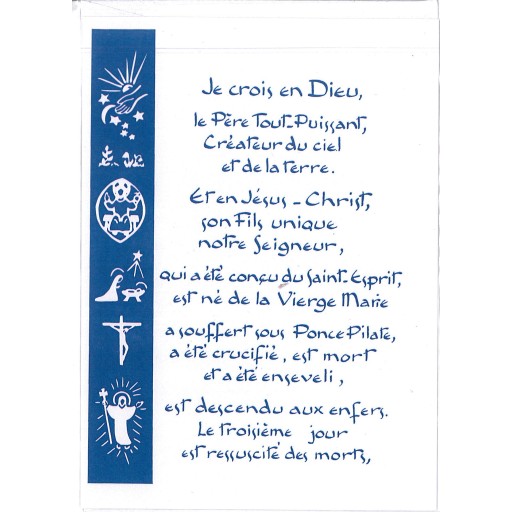 Je crois en Dieu,
le Père Tout-Puissant,
Créateur du ciel
et de la terre.
Et en Jésus-Christ,
son Fils unique
notre Seigneur,
qui a été conçu du Saint-Esprit,
est né de la Vierge Marie
a souffert sous Ponce Pilate,
a été crucifié, est mort
et a été enseveli,
est descendu aux enfers.
Le troisième jour
est ressuscité des morts,